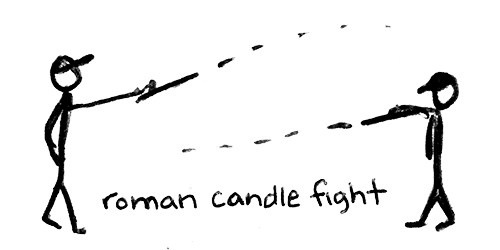 roman candle fight